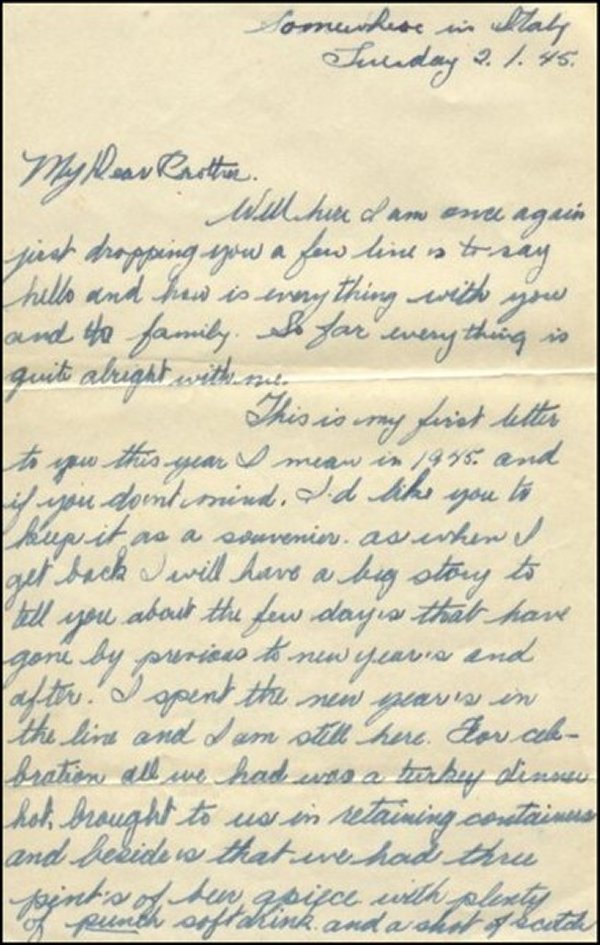 Somewhere in Italy
Tuesday 2.1.45.
My Dear Brother.
Well here I am once again
just dropping you a few line's to say
hello and how is everything with you
and the family. So far everything is
quite alright with me.
This is my first letter
to you this year I mean in 1945. and
if you dont mind. I'd like you to
keep it as a souvenier. as when I
get back I will have a big story to
tell you about the few day's that have
gone by previous to new year's and
after. I spent the new year's in
the line and I am still here. For cele-
bration all we had was a turkey dinner
hot, brought to us in retaining containers
and beside's that we had three
pint's of beer apiece with plenty
of punch softdrink. and a shot of scotch